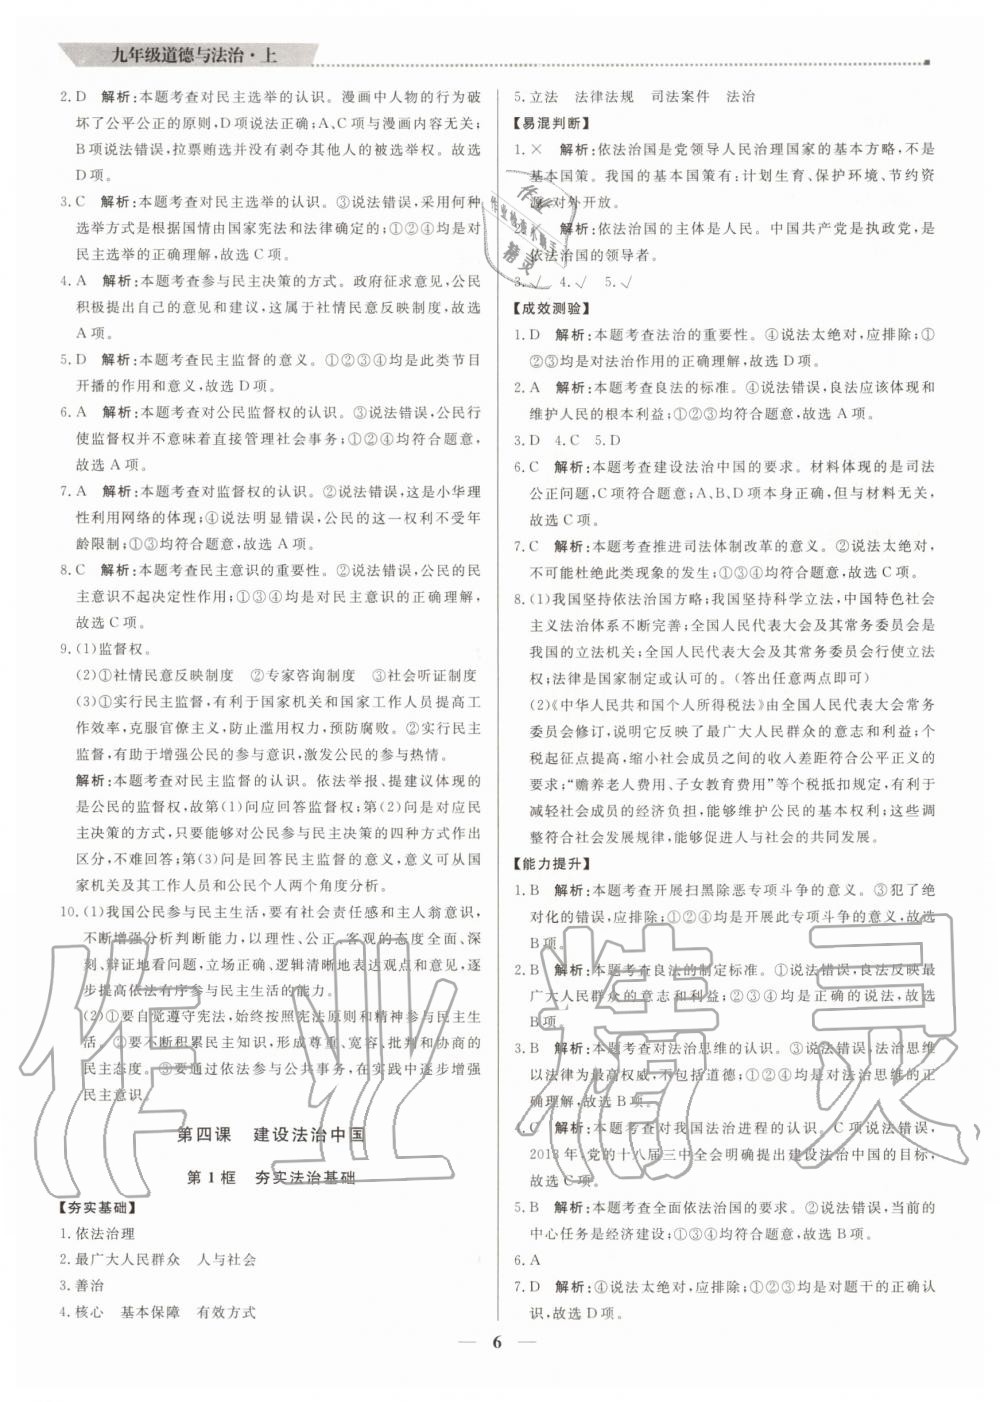 九年级道德与法治·上
2. D 解析:本题考查对民主选举的认识。漫画中人物的行为破
坏了公平公正的原则,D项说法正确;A、C项与漫画内容无关;
B项说法错误,拉票贿选并没有剥夺其他人的被选举权。故选
D项。
3. C 解析:本题考查对民主选举的认识。③说法错误,采用何种
选举方式是根据国情由国家宪法和法律确定的;①②④均是对
民主选举的正确理解,故选C项。
4. A 解析:本题考查参与民主决策的方式。政府征求意见,公民
积极提出自己的意见和建议,这属于社情民意反映制度,故选
A项。
5. D 解析:本题考查民主监督的意义。①②③④均是此类节目
开播的作用和意义,故选D项。
6. A 解析:本题考查对公民监督权的认识。③说法错误,公民行
使监督权并不意味着直接管理社会事务;①②④均符合题意,
故选A项。
7. A 解析:本题考查对监督权的认识。②说法错误,这是小华理
性利用网络的体现;④说法明显错误,公民的这一权利不受年
龄限制;①③均符合题意,故选A项。
8. C 解析:本题考查民主意识的重要性。②说法错误,公民的民
主意识不起决定性作用;①③④均是对民主意识的正确理解,
故选C项。
9. (1)监督权。
(2)①社情民意反映制度 ②专家咨询制度 ③社会听证制度
(3)①实行民主监督,有利于国家机关和国家工作人员提高工
作效率,克服官僚主义,防止滥用权力,预防腐败。②实行民主
监督,有助于增强公民的参与意识,激发公民的参与热情。
解析:本题考查对民主监督的认识。依法举报、提建议体现的
是公民的监督权,故第(1)问应回答监督权;第(2)问是对应民
主决策的方式,只要能够对公民参与民主决策的四种方式作出
区分,不难回答;第(3)问是回答民主监督的意义,意义可从国
家机关及其工作人员和公民个人两个角度分析。
10. (1)我国公民参与民主生活,要有社会责任感和主人翁意识,
不断增强分析判断能力,以理性、公正、客观的态度全面、深
刻、辩证地看问题,立场正确、逻辑清晰地表达观点和意见,逐
步提高依法有序参与民主生活的能力。
(2)①要自觉遵守宪法,始终按照宪法原则和精神参与民主生
活。②要不断积累民主知识,形成尊重、宽容、批判和协商的
民主态度。③要通过依法参与公共事务,在实践中逐步增强
民主意识。
第四课 建设法治中国
第1框 夯实法治基础
【夯实基础】
1. 依法治理
2. 最广大人民群众 人与社会
3. 善治
4. 核心 基本保障 有效方式
5. 立法 法律法规 司法案件 法治
【易混判断】
1. × 解析:依法治国是党领导人民治理国家的基本方略,不是
基本国策。我国的基本国策有:计划生育、保护环境、节约资
源、对外开放。
解析:依法治国的主体是人民。中国共产党是执政党,是
依法治国的领导者。
3. √ 4. √ 5. √
【成效测验】
1. D 解析:本题考查法治的重要性。④说法太绝对,应排除;①
②③均是对法治作用的正确理解,故选D项。
2. A 解析:本题考查良法的标准。④说法错误,良法应该体现和
维护人民的根本利益;①②③均符合题意,故选A项。
3. D 4. C 5. D
6. C 解析:本题考查建设法治中国的要求。材料体现的是司法
公正问题,C项符合题意;A、B、D项本身正确,但与材料无关,
故选C项。
7. C 解析:本题考查推进司法体制改革的意义。②说法太绝对,
不可能杜绝此类现象的发生;①③④均符合题意,故选C项。
8. (1)我国坚持依法治国方略;我国坚持科学立法,中国特色社会
主义法治体系不断完善;全国人民代表大会及其常务委员会是
我国的立法机关;全国人民代表大会及其常务委员会行使立法
权;法律是国家制定或认可的。(答出任意两点即可)
(2)《中华人民共和国个人所得税法》由全国人民代表大会常务
委员会修订,说明它反映了最广大人民群众的意志和利益;个
税起征点提高,缩小社会成员之间的收入差距符合公平正义的
要求;“赡养老人费用、子女教育费用”等个税抵扣规定,有利于
减轻社会成员的经济负担,能够维护公民的基本权利;这些调
整符合社会发展规律,能够促进人与社会的共同发展。
【能力提升】
1. B 解析:本题考查开展扫黑除恶专项斗争的意义。③犯了绝
对化的错误,应排除;①②④均是开展此专项斗争的意义,故选
B项。
2. B 解析:本题考查良法的制定标准。①说法错误,良法反映最
广大人民群众的意志和利益;②③④均是正确的说法,故选
B项。
3. B 解析:本题考查对法治思维的认识。③说法错误,法治思维
以法律为最高权威,不包括道德;①②④均是对法治思维的正
确理解,故选B项。
4. C 解析:本题考查对我国法治进程的认识。C项说法错误,
2013年,党的十八届三中全会明确提出建设法治中国的目标,
故选C项。
5. B 解析:本题考查全面依法治国的要求。②说法错误,当前的
中心任务是经济建设;①③④均符合题意,故选B项。
6. A
7. D 解析:④说法太绝对,应排除;①②③均是对题干的正确认
识,故选D项。
6
作业精灵